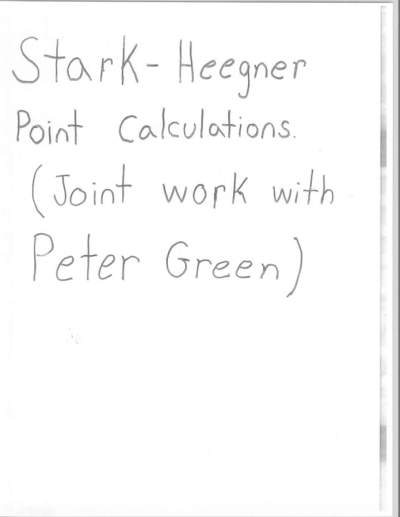 Stark-Heegner
Point Calculations.
(Joint work with
Peter Green)